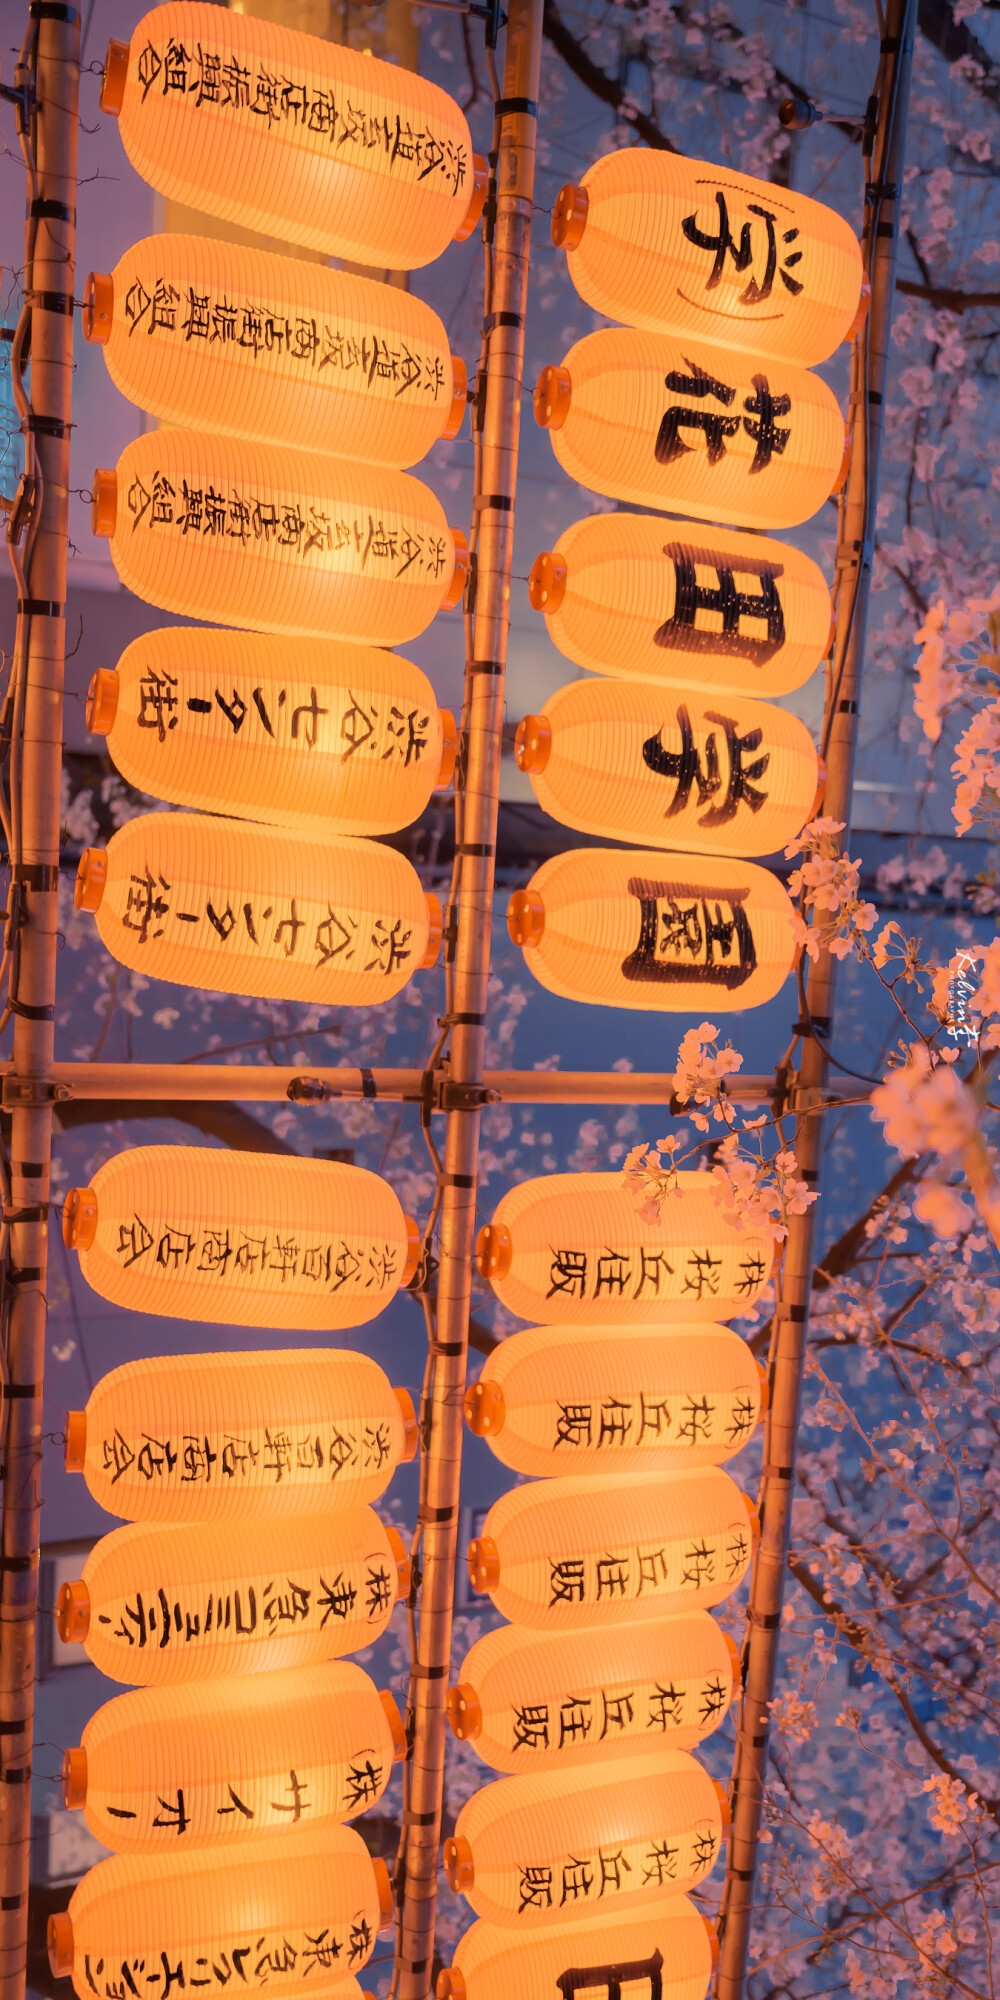 (学)
花
田
学
園
(株)桜丘住販
(株)桜丘住販
(株)桜丘住販
(株)桜丘住販
(株)桜丘住販
渋谷道玄坂商店街振興組合
渋谷道玄坂商店街振興組合
渋谷道玄坂商店街振興組合
渋谷センター街
渋谷センター街
渋谷百軒店商店会
渋谷百軒店商店会
(株)東急コミュニティー
(株)サイオー
(株)東急レクリエーション